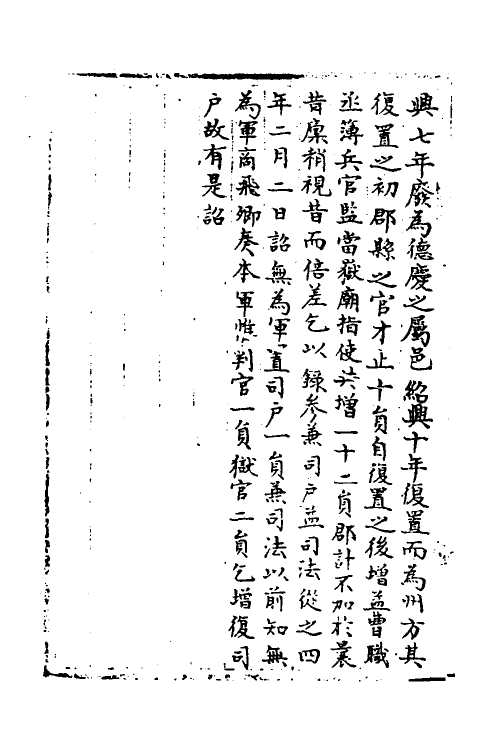 興七年廢為德慶之屬邑紹興十年復置而為州方其
復置之初郡縣之官才止十員自復置之後增益曹職
丞簿兵官監當嶽廟指使共增一十二員郡計不加於曩
昔廩稍視昔而倍差乞以錄參兼司戶益司法從之四
年二月二日詔無為軍置司戶一員兼司法以前知無
為軍商飛卿奏本軍惟判官一員獄官二員乞增復司
戶故有是詔